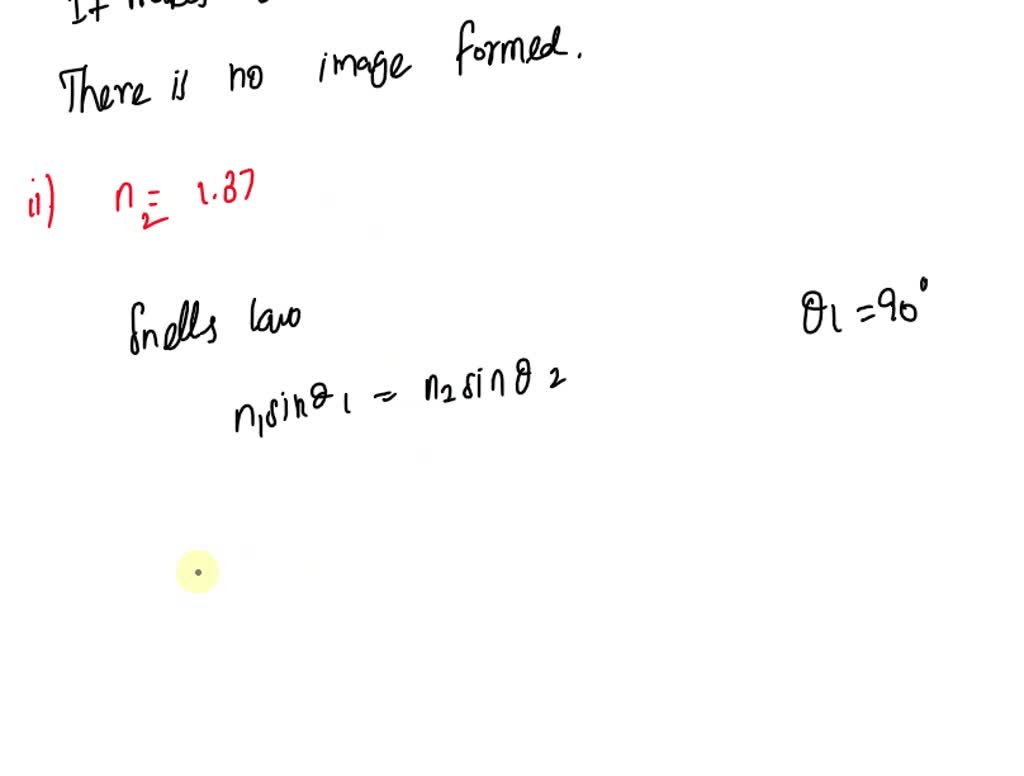 It
There is no image formed.
ii) n2 = 1.37
Snells law
θ1 = 90°
n1 sin θ1 = n2 sin θ2